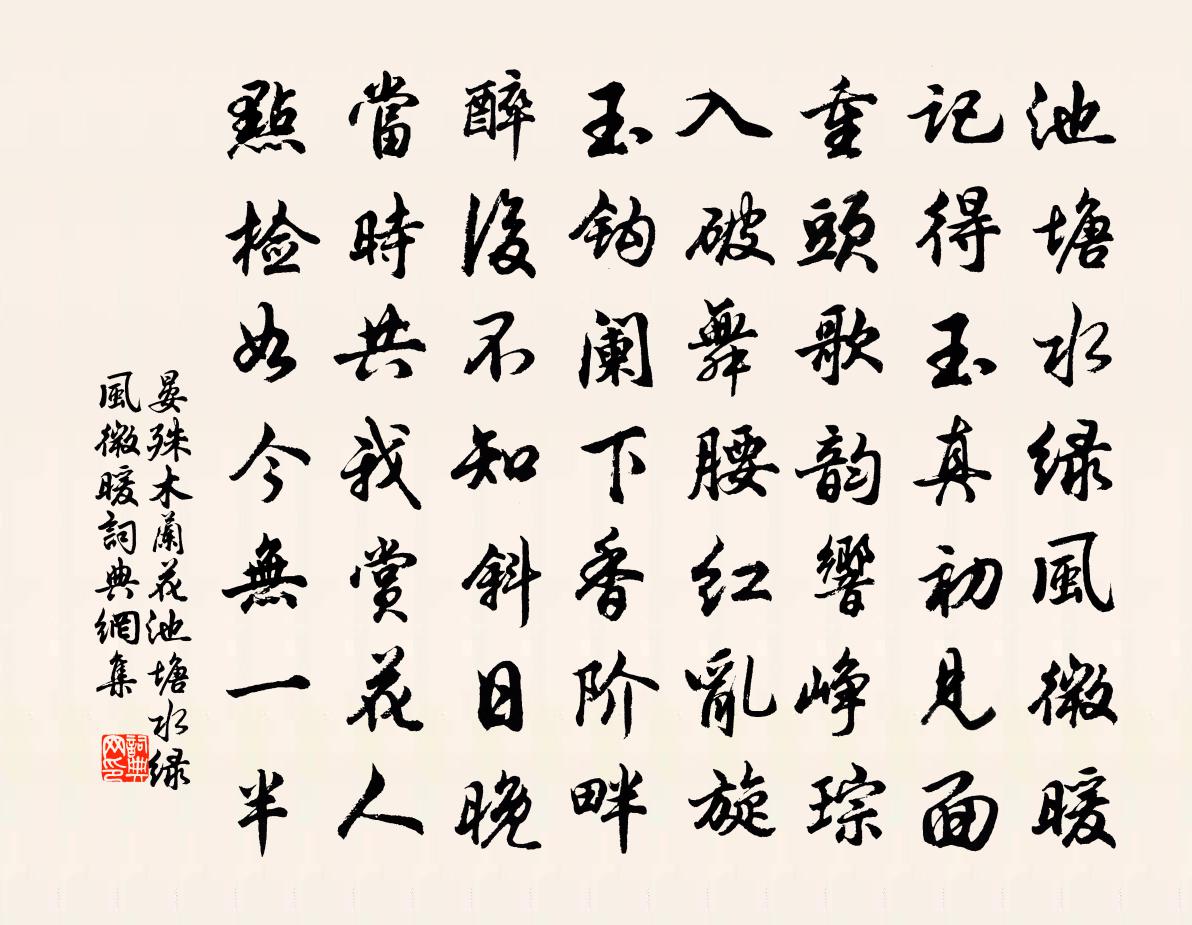 池塘水绿風微暖
記得玉真初見面
重頭歌韵響崢琮
入破舞腰红亂旋
玉钩阑下香阶畔
醉後不知斜日晚
當時共我赏花人
點檢如今無一半
晏殊木蘭花池塘水绿
風微暖詞典網集
詞典
网印